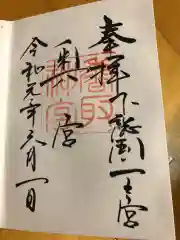 奉拝 下総国一之宮
香取
神宮
令和元年五月一日